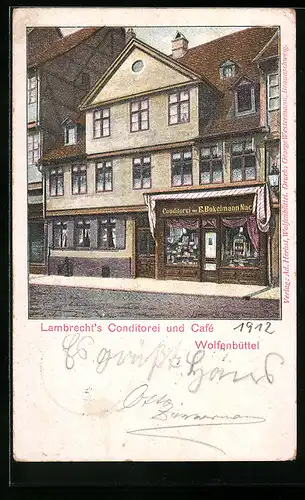 Conditorei von E. Bökelmann Nac
Verlag: Ad. Herbst, Wolfenbüttel. Druck: George Westermann, Braunschweig.
Lambrecht's Conditorei und Café 1912
Wolfenbüttel
Es grüßt Hans
Otto
Zimmermann